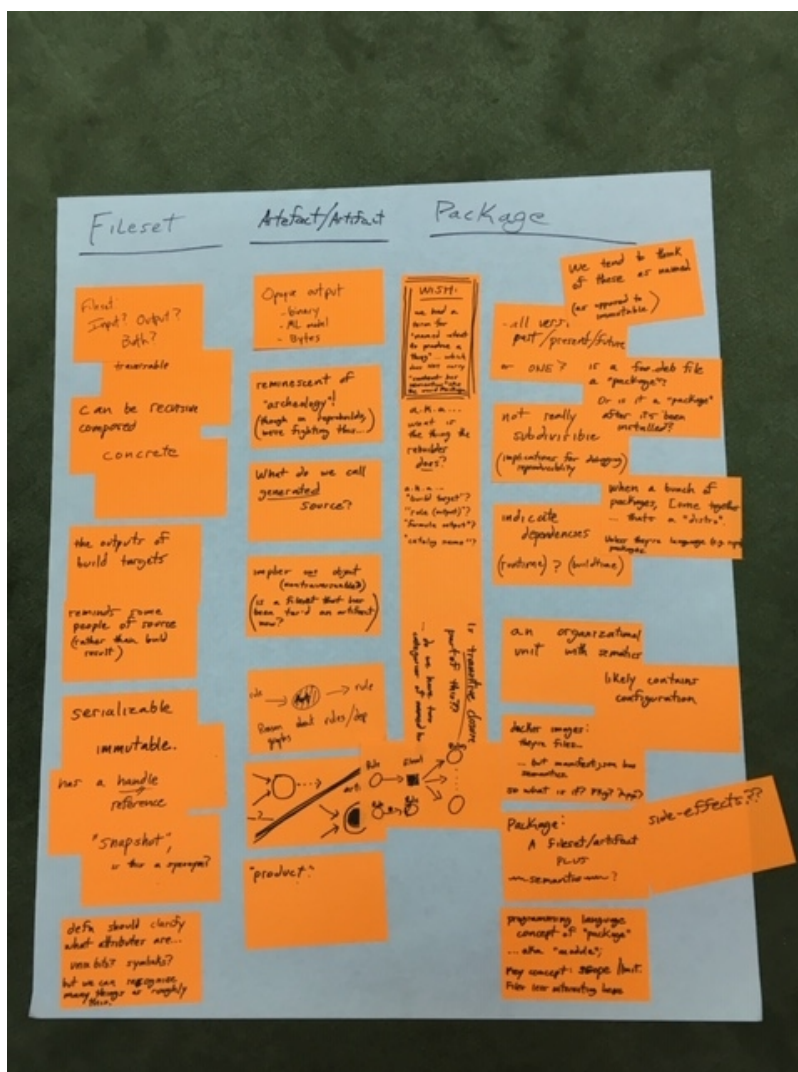 Fileset
Artefact/Artifact
Package
Fileset:
Input? Output?
Both?
traversable
can be recursive
composed
concrete
the outputs of
build targets
reminds some
people of source
(rather than build
result)
serializable
immutable.
has a handle
reference
"snapshot",
is this a synonym?
defn should clarify
what attributes are...
unix bits? symlinks?
but we can recognise
many things as roughly
this.
Opaque output
- binary
- ML model
- Bytes
reminiscent of
"archeology"!
(though in
we're fighting this...)
What do we call
generated
source?
implies one object
(nontraversable?)
(is a fileset that has
been tar'd an artifact
now?)
rule
rule
Reason about rules/dep
graphs
"product."
WISH:
we had a
term for
"named
to produce a
thing"... which
does not carry
a.k.a...
what is
the thing the
rebuilder
does?
a.k.a...
"build target"?
"rule (output)"?
"formula output"?
"catalog name"?
Is transitive closure
part of this??
... do we have two
We tend to think
of these as named
(as opposed to
immutable)
- all vers:
past/present/future
or ONE?
is a foo.deb file
a "package"?
Or is it a "package"
after it's been
installed?
not really
subdivisible
(implications for debugging
reproducibility)
when a bunch of
packages, come together
... that's a "distro".
Unless they're language
packages.
indicate
dependencies
(runtime)? (buildtime)
an organizational
unit with semantics
likely contains
configuration
docker images:
they're files...
... but manifest.json has
semantics
so what is it? Pkg? App?
Package:
A fileset/artifact
PLUS
~semantics~?
side-effects??
programming language
concept of "package"
... aka "module";
Key concept: scope/limit.